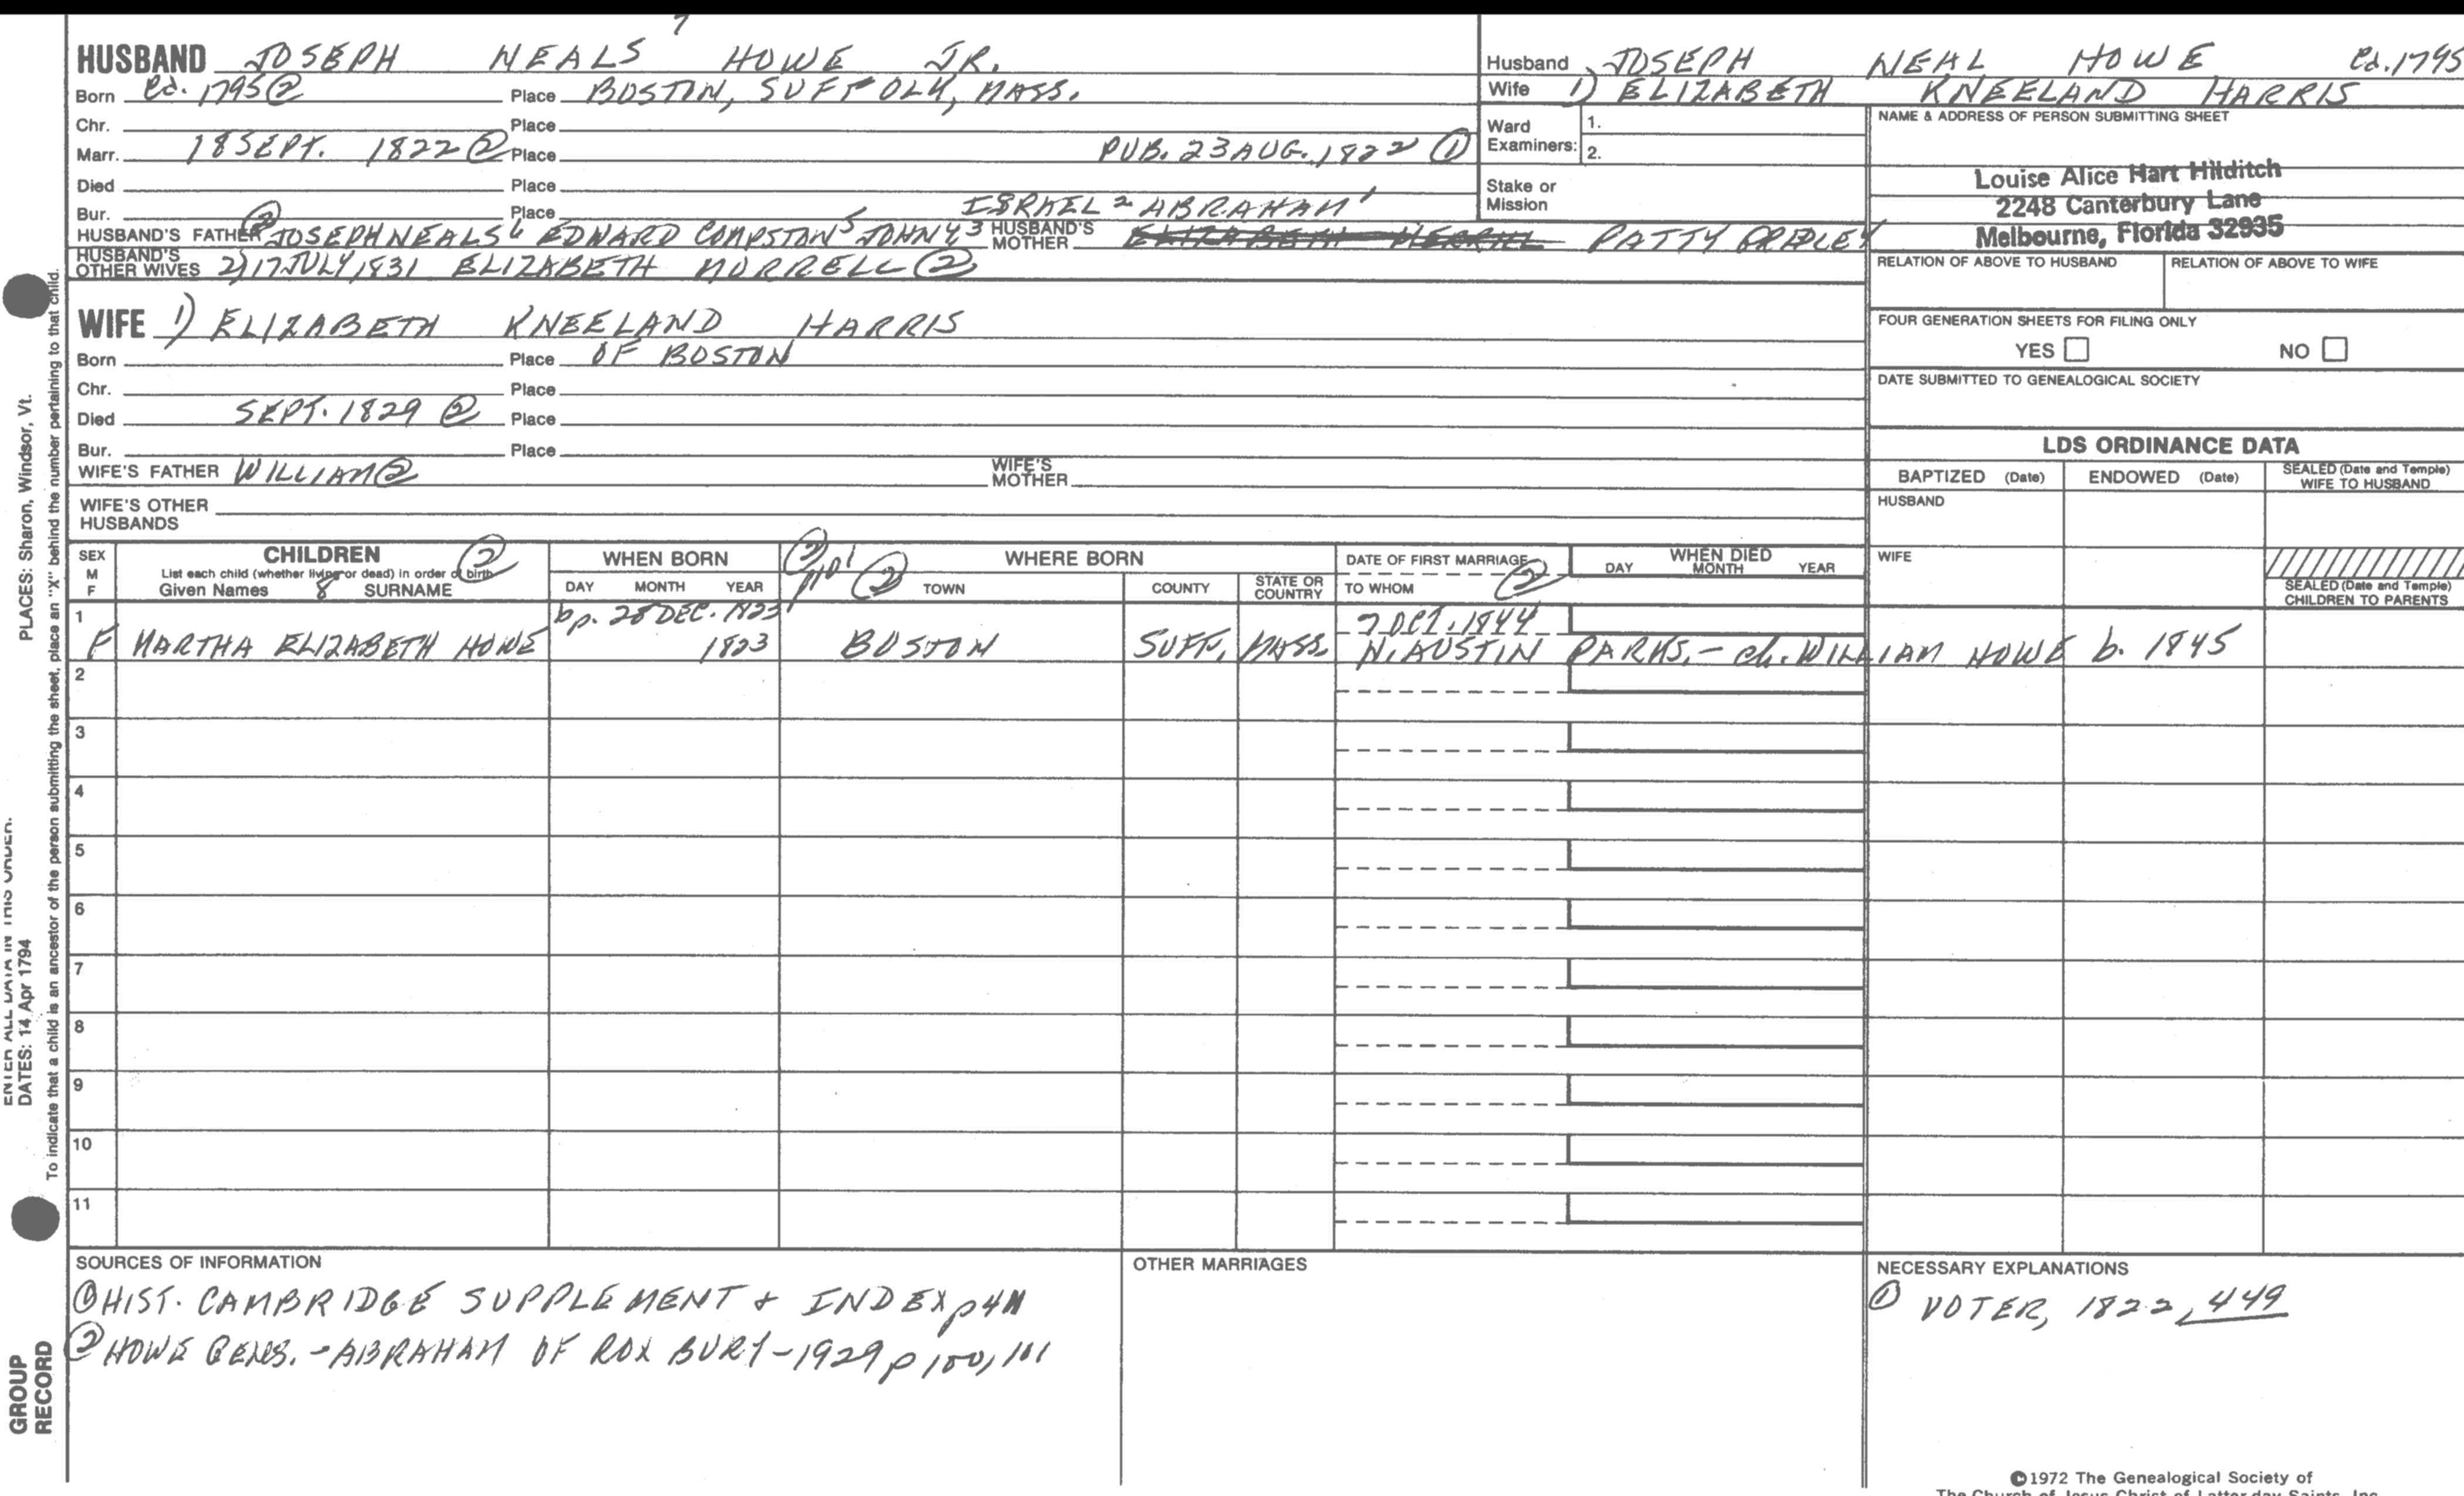 7
HUSBAND JOSEPH NEALS HOWE JR.
Born Ca. 1795 ② Place BOSTON, SUFFOLK, MASS.
Chr. Place
Marr. 18 SEPT. 1822 ② Place PUB. 23 AUG. 1822 ①
Died Place
Bur. Place ISRAEL 2 ABRAHAM 1
HUSBAND'S FATHER ② JOSEPH NEALS 6 EDWARD COMPSTON 5 JOHN 4 3 HUSBAND'S MOTHER PATTY
HUSBAND'S OTHER WIVES 2) 17 JULY 1831 ELIZABETH MORRELL ②
WIFE 1) ELIZABETH KNEELAND HARRIS
Born Place OF BOSTON
Chr. Place
Died SEPT. 1829 ② Place
Bur. Place
WIFE'S FATHER WILLIAM ② WIFE'S MOTHER
WIFE'S OTHER HUSBANDS
Husband JOSEPH NEAL HOWE Ca. 1795
Wife 1) ELIZABETH KNEELAND HARRIS
Ward Examiners: 1.
2.
Stake or Mission
NAME & ADDRESS OF PERSON SUBMITTING SHEET
Louise Alice Hart Hilditch
2248 Canterbury Lane
Melbourne, Florida 32935
RELATION OF ABOVE TO HUSBAND RELATION OF ABOVE TO WIFE
FOUR GENERATION SHEETS FOR FILING ONLY
YES NO
DATE SUBMITTED TO GENEALOGICAL SOCIETY
LDS ORDINANCE DATA
BAPTIZED (Date) ENDOWED (Date) SEALED (Date and Temple) WIFE TO HUSBAND
HUSBAND
WIFE
SEALED (Date and Temple) CHILDREN TO PARENTS
SEX M F
CHILDREN ②
List each child (whether living or dead) in order of birth
Given Names 8 SURNAME
WHEN BORN
DAY MONTH YEAR
② p101 ②
WHERE BORN
TOWN COUNTY STATE OR COUNTRY
DATE OF FIRST MARRIAGE
TO WHOM ②
WHEN DIED
DAY MONTH YEAR
1 bp. 28 DEC. 1823 7 OCT. 1844
F MARTHA ELIZABETH HOWE 1823 BOSTON SUFF. MASS. N. AUSTIN PARKS. – ch. WILLIAM HOWE b. 1845
2
3
4
5
6
7
8
9
10
11
SOURCES OF INFORMATION
① HIST. CAMBRIDGE SUPPLEMENT & INDEX
② HOWE GENS. – ABRAHAM OF ROXBURY – 1929 p 100, 101
OTHER MARRIAGES
NECESSARY EXPLANATIONS
① VOTER, 1822, 449
©1972 The Genealogical Society of
The Church of Jesus Christ of Latter-day Saints, Inc.
PLACES: Sharon, Windsor, Vt.
ENTER ALL DATA IN THIS ORDER.
DATES: 14 Apr 1794
To indicate that a child is an ancestor of the person submitting the sheet, place an "X" behind the number pertaining to that child.
GROUP
RECORD